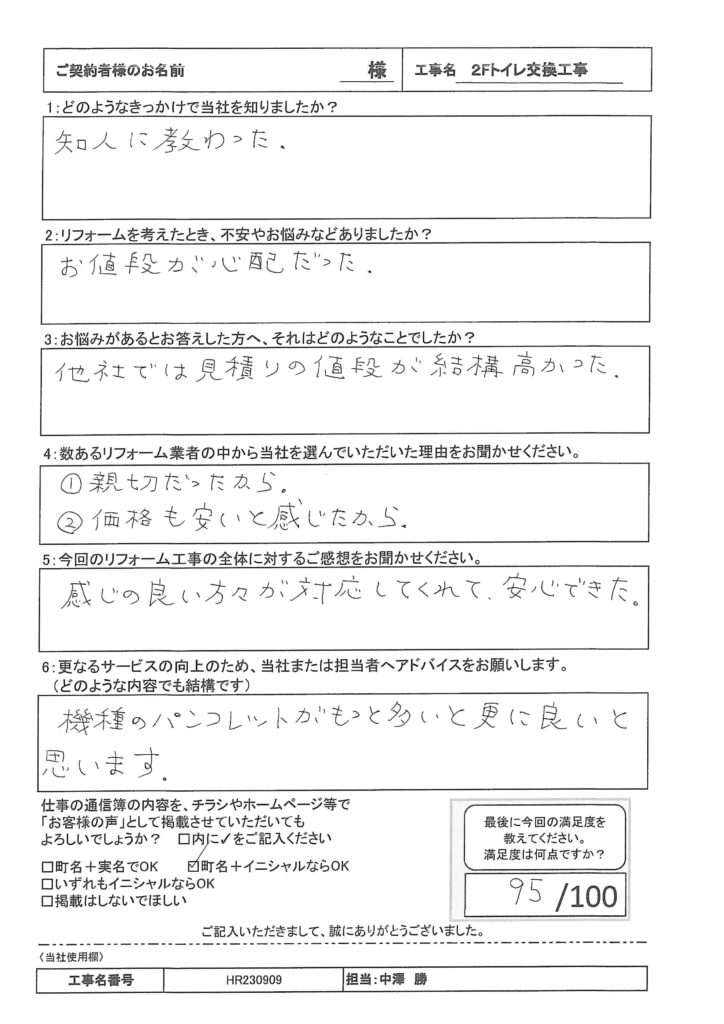 ご契約者様のお名前 様 工事名 2Fトイレ交換工事
1:どのようなきっかけで当社を知りましたか?
知人に教わった.
2:リフォームを考えたとき、不安やお悩みなどありましたか?
お値段が心配だった.
3:お悩みがあるとお答えした方へ、それはどのようなことでしたか?
他社では見積りの値段が結構高かった.
4:数あるリフォーム業者の中から当社を選んでいただいた理由をお聞かせください。
①親切だったから。
②価格も安いと感じたから。
5:今回のリフォーム工事の全体に対するご感想をお聞かせください。
感じの良い方々が対応してくれて、安心できた。
6:更なるサービスの向上のため、当社または担当者へアドバイスをお願いします。
(どのような内容でも結構です)
機種のパンフレットがもっと多いと更に良いと
思います.
仕事の通信簿の内容を、チラシやホームページ等で
「お客様の声」として掲載させていただいても
よろしいでしょうか? □内に✓をご記入ください
□町名+実名でOK ☑町名+イニシャルならOK
□いずれもイニシャルならOK
□掲載はしないでほしい
最後に今回の満足度を
教えてください。
満足度は何点ですか?
95/100
ご記入いただきまして、誠にありがとうございました。
〈当社使用欄〉
工事名番号 HR230909 担当:中澤 勝